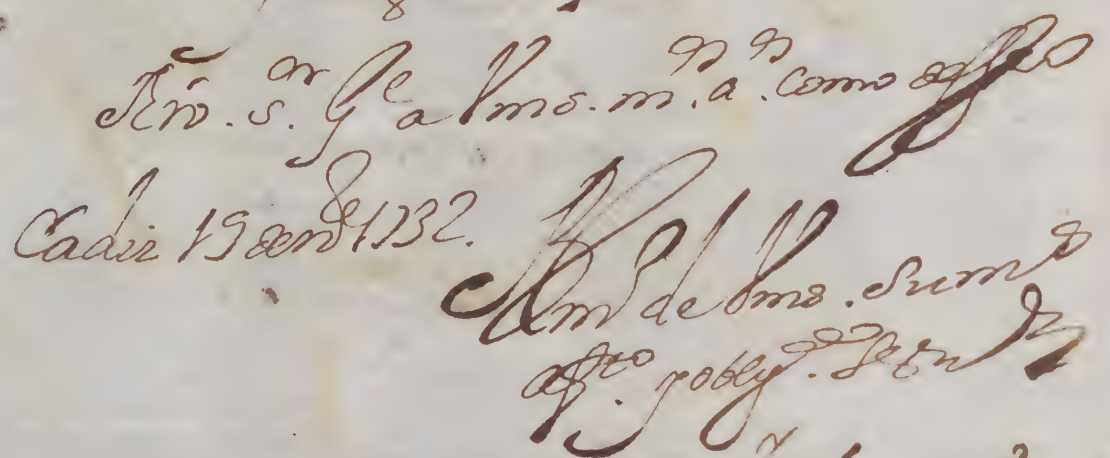 Nro. S.or G.e a Vms. m.s a.s como
Cadiz 19 de en.o de 1732.
BLm de Vms. Su m.s
aff.to y oblig.do Ser.or